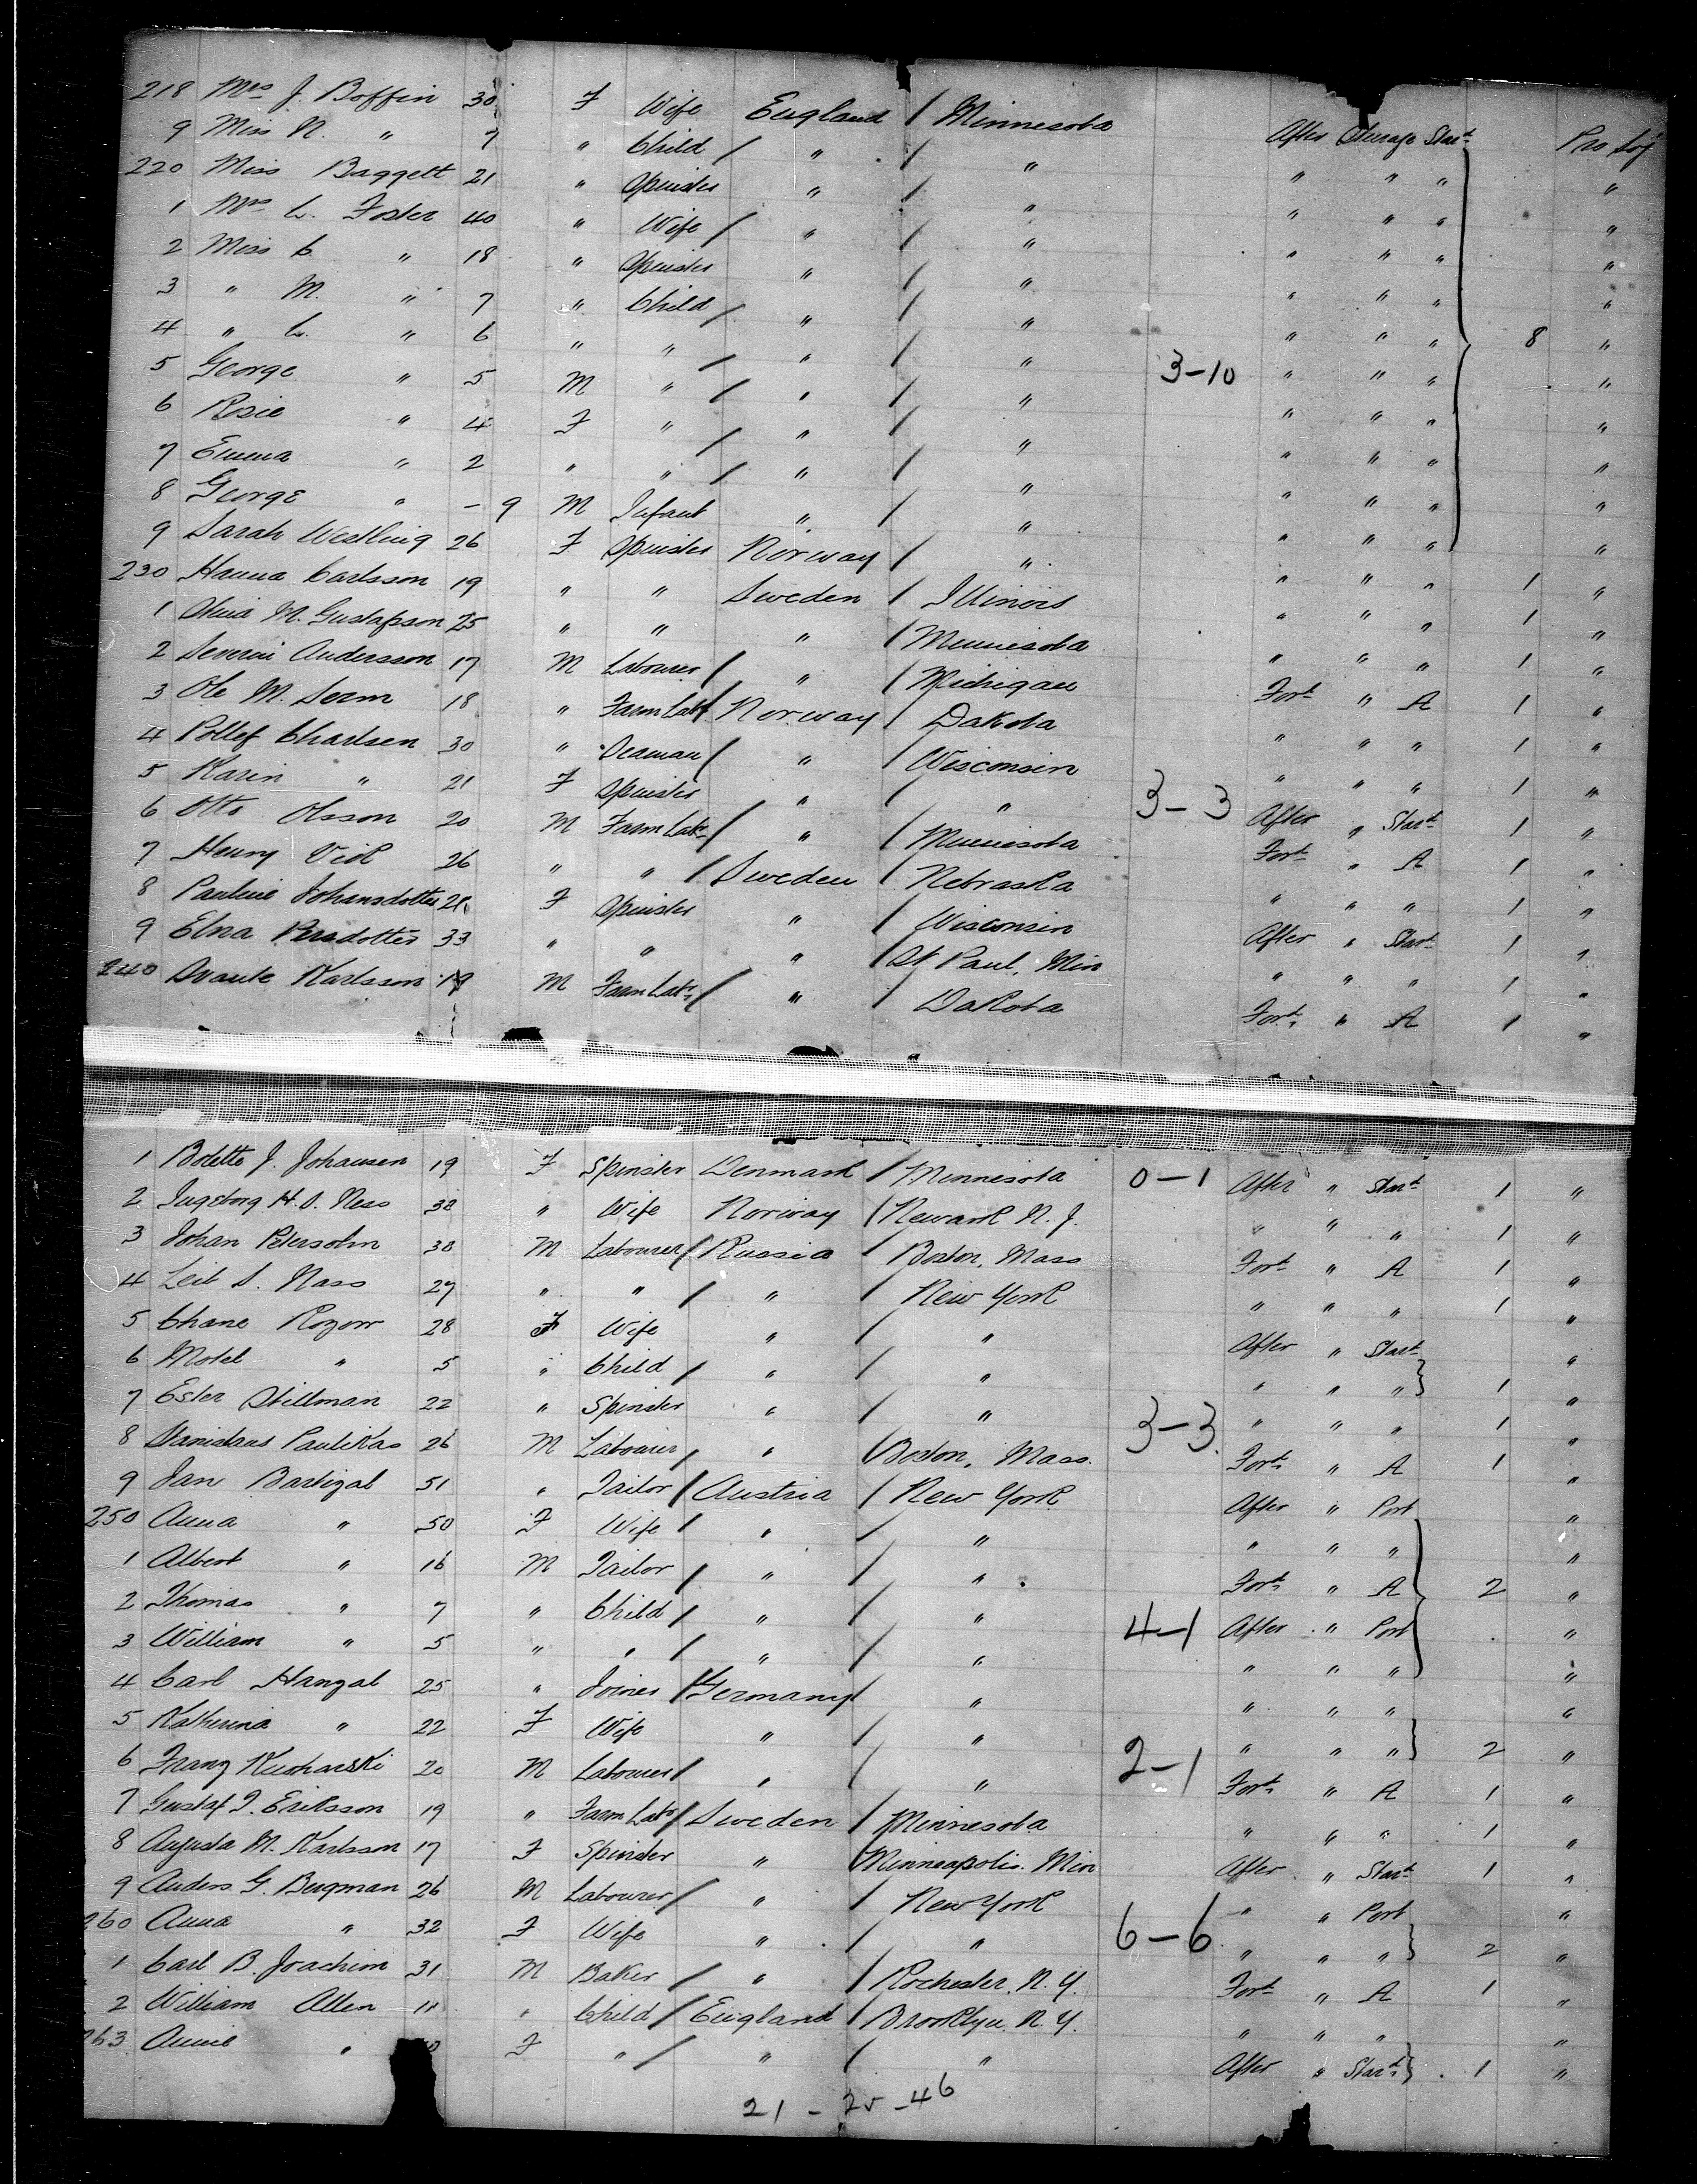 218 Mrs J. Boffin 30 F Wife England / Minnesota After Steerage Starb Pro Soj
9 Miss N. " 7 " Child / " / " " " " "
220 Miss Baggett 21 " Spinster " / " " " " "
1 Mrs C. Foster 40 " Wife / " / " " " " "
2 Miss C " 18 " Spinster " / " " " " "
3 " M. " 7 " Child / " / " " " " "
4 " C. " 6 " " / " / " " " " 8 "
5 George " 5 M " / " / " 3-10 " " " "
6 Rosie " 4 F " / " / " " " " "
7 Emma " 2 " " / " / " " " " "
8 George " - 9 M Infant " / " " " " "
9 Sarah Westling 26 F Spinster Norway / " " " " "
230 Hanna Carlsson 19 " " Sweden / Illinois " " " 1 "
1 M. Gustafson 25 " " " / Minnesota " " " 1 "
2 Andersson 17 M Labourer / " / Michigan " " " 1 "
3 Ole M. 18 " Farm Labr Norway / Dakota Ford " A 1 "
4 Charlsen 30 " Seaman / " / Wisconsin " " " 1 "
5 Karin " 21 F Spinster " / " 3-3 " " " 1 "
6 Otto Olsson 20 M Farm Labr / " / Minnesota After " Starb 1 "
7 Henry 26 " " / Sweden / Nebraska Ford " A 1 "
8 Pauline Johansdotter 21 F Spinster " / Wisconsin " " " 1 "
9 Elna Persdotter 33 " " " / St Paul, Min After " Starb 1 "
240 Svante Karlsson 19 M Farm Labr / " / Dakota " " " 1 "
Ford " A 1 "
1 Bolette J. Johansen 19 F Spinster Denmark / Minnesota 0-1 After " Starb 1 "
2 Ingeborg H. O. Ness 38 " Wife Norway / Newark N. J. " " " 1 "
3 Johan Petersohn 38 M Labourer / Russia / Boston, Mass Ford " A 1 "
4 Leib S. Nass 27 " " / " New York " " " 1 "
5 Chane Rozow 28 F Wife " / " After " Starb "
6 Motel " 5 " Child / " / " " " " 1 "
7 Ester Stillman 22 " Spinster " / " 3-3 " " " 1 "
8 Stanislaus Paulikas 26 M Labourer / " / Boston, Mass. Ford " A 1 "
9 Jan Bartigal 51 " Tailor / Austria / New York After " Port "
250 Anna " 50 F Wife / " / " " " " "
1 Albert " 16 M Tailor / " / " Ford " A 2 "
2 Thomas " 7 " Child / " / " 4-1 After " Port "
3 William " 5 " " / " / " " " " "
4 Carl Hangal 25 " Joiner / Germany / " " " " "
5 Katherina " 22 F Wife " / " 2-1 " " " 2 "
6 Franz Kucharski 20 M Labourer / " / " Ford " A 1 "
7 Gustaf J. Eriksson 19 " Farm Labr / Sweden / Minnesota " " " 1 "
8 Augusta M. Karlsson 17 F Spinster " / Minneapolis. Min After " Starb 1 "
9 Anders G. Bergman 26 M Labourer / " / New York " " Port "
260 Anna " 32 F Wife " / " 6-6 " " " 2 "
1 Carl B. Joachim 31 M Baker / " / Rochester, N. Y. Ford " A 1 "
2 William Allen 11 " Child / England / Brooklyn. N. Y. " " " "
263 Annie " F " / " / " After " Starb 1 "
21 - 25 - 46